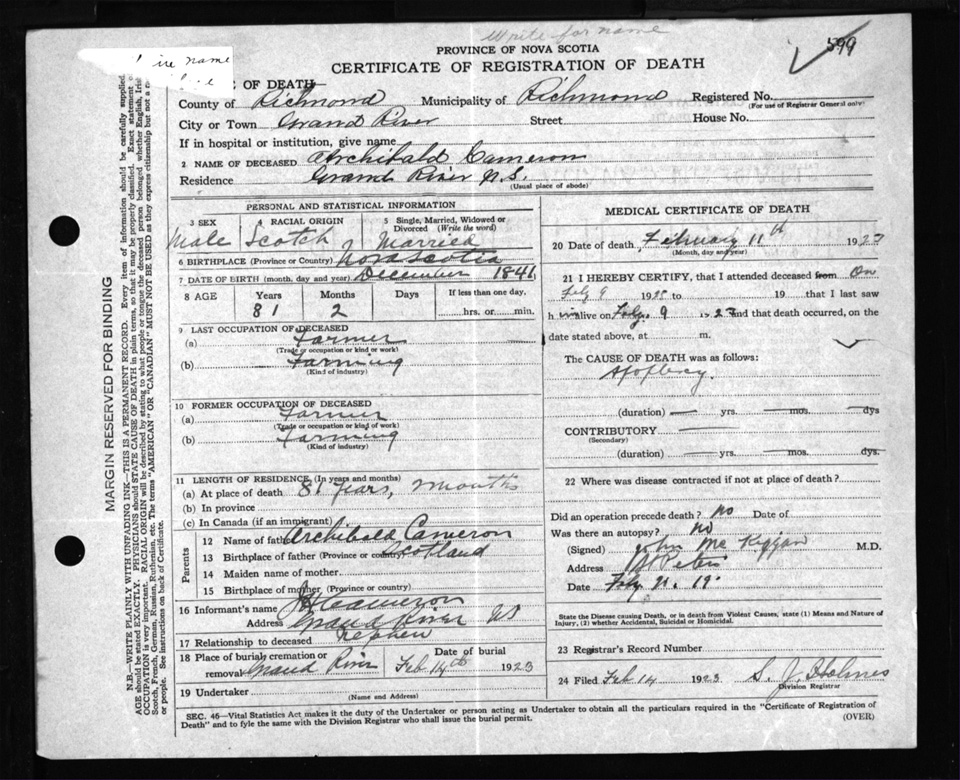 Write for name
599
PROVINCE OF NOVA SCOTIA
CERTIFICATE OF REGISTRATION OF DEATH
name
OF DEATH—
County of Richmond Municipality of Richmond Registered No.
(For use of Registrar General only)
City or Town Grand River Street House No.
If in hospital or institution, give name
2 NAME OF DECEASED Archibald Cameron
Residence Grand River N.S.
(Usual place of abode)
MARGIN RESERVED FOR BINDING
N.B.—WRITE PLAINLY WITH UNFADING INK—THIS IS A PERMANENT RECORD. Every item of information should be carefully supplied.
AGE should be stated EXACTLY. PHYSICIANS should STATE CAUSE OF DEATH in plain terms, so that it may be properly classified. Exact statement
OCCUPATION is very important. RACIAL ORIGIN will be described by stating to what people or tongue the deceased person belonged whether English, Iris
Scotch, French, German, Russian, Ruthenian, etc. The terms "AMERICAN" OR "CANADIAN" MUST NOT BE USED as they express citizenship but not a
or people. See instructions on back of Certificate.
PERSONAL AND STATISTICAL INFORMATION
3 SEX 4 RACIAL ORIGIN 5 Single, Married, Widowed or
Divorced (Write the word)
Male Scotch Married
6 BIRTHPLACE (Province or Country) Nova Scotia
7 DATE OF BIRTH (month, day and year) December 1841
8 AGE Years Months Days If less than one day.
81 2 hrs. or min.
9 LAST OCCUPATION OF DECEASED
(a) Farmer
(Trade or occupation or kind or work)
(b) Farming
(Kind of industry)
10 FORMER OCCUPATION OF DECEASED
(a) Farmer
(Trade or occupation or kind of work)
(b) Farming
(Kind of industry)
11 LENGTH OF RESIDENCE (In years and months)
(a) At place of death 81 years, months
(b) In province
(c) In Canada (if an immigrant)
Parents
12 Name of father Archibald Cameron
13 Birthplace of father (Province or country) Scotland
14 Maiden name of mother
15 Birthplace of mother (Province or country)
16 Informant's name Cameron
Address Grand River NS
17 Relationship to deceased nephew
18 Place of burial cremation or Date of burial
removal Grand River Feb 14th 1923
19 Undertaker
(Name and Address)
MEDICAL CERTIFICATE OF DEATH
20 Date of death February 11th 1923
(Month, day and year)
21 I HEREBY CERTIFY, that I attended deceased from On
Feby 9 19 to 19 that I last saw
h im alive on Feby. 9 1923 and that death occurred, on the
date stated above, at m.
The CAUSE OF DEATH was as follows:
Apoplexy.
(duration) yrs. mos. dys
CONTRIBUTORY
(Secondary)
(duration) yrs. mos. dys.
22 Where was disease contracted if not at place of death?
Did an operation precede death? No Date of
Was there an autopsy? No
(Signed) John Mc M.D.
Address St Peters
Date Feby 19
State the Disease causing Death, or in death from Violent Causes, state (1) Means and Nature of
Injury, (2) whether Accidental, Suicidal or Homicidal.
23 Registrar's Record Number
24 Filed Feb 14 1923 S. J. Holmes
Division Registrar
SEC. 46—Vital Statistics Act makes it the duty of the Undertaker or person acting as Undertaker to obtain all the particulars required in the "Certificate of Registration of
Death" and to fyle the same with the Division Registrar who shall issue the burial permit.
(OVER)